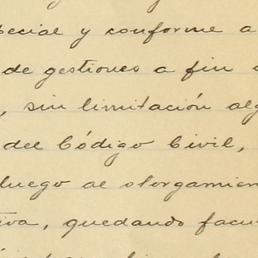 pecial y conforme a
de gestiones a fin
, sin limitación alg
del Código Civil,
luego al otorgamien
iva, quedando facu